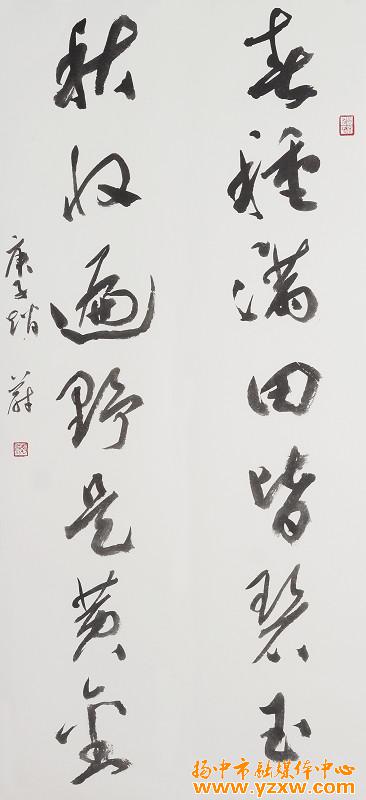 春種满田皆碧玉
秋收遍野是黄金
庚子
扬中市融媒体中心
www.yzxw.com